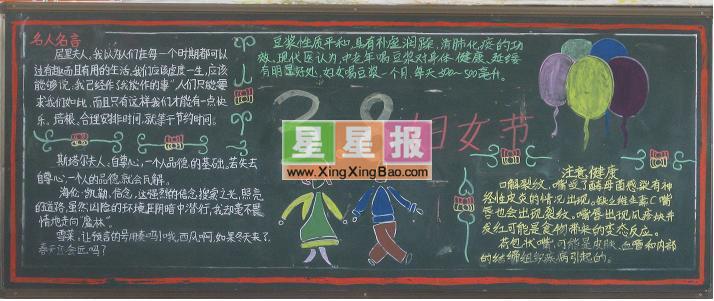 名人名言
居里夫人，我以为人们在每一个时期都可以
过有趣而且有用的生活，我们应该虚度一生，应该
能够说，我已经作了我能作的事"人们只能要
求我们如此，而且只有这样我们才能有一点快
乐。培根，合理安排时间，就等于节约时间。
斯塔尔夫人，自尊心，一个人品德的基础。若失去
自尊心，一个人的品德就会瓦解。
海伦·凯勒，信念，这强烈的信念搜索之光，照亮
的道路，虽然凶险的环境在阴暗中潜行，我却毫不畏
惧地走向"魔林"
雪莱，让预言的号角奏鸣！哦，西风啊，如果冬天来了，
春天还会远吗？
豆浆性质平和，具有补虚润燥、清肺化痰的功
效，现代医认为，中老年喝豆浆对身体健康、延缓
有明显好处，妇女喝豆浆一个月，每天300～500毫升。
3 8
妇女节
星星报
www.XingXingBao.com
注意健康
口角裂纹，嘴角发了酵母菌感染有神
经性皮炎的情况出现，缺乏维生素C嘴
唇也会出现裂纹。嘴唇出现瓜疹块并
发红可能是食物带来的变态反应。
若包状嘴，可能是皮肤、血管和内部
的结缔组织疾病引起的。